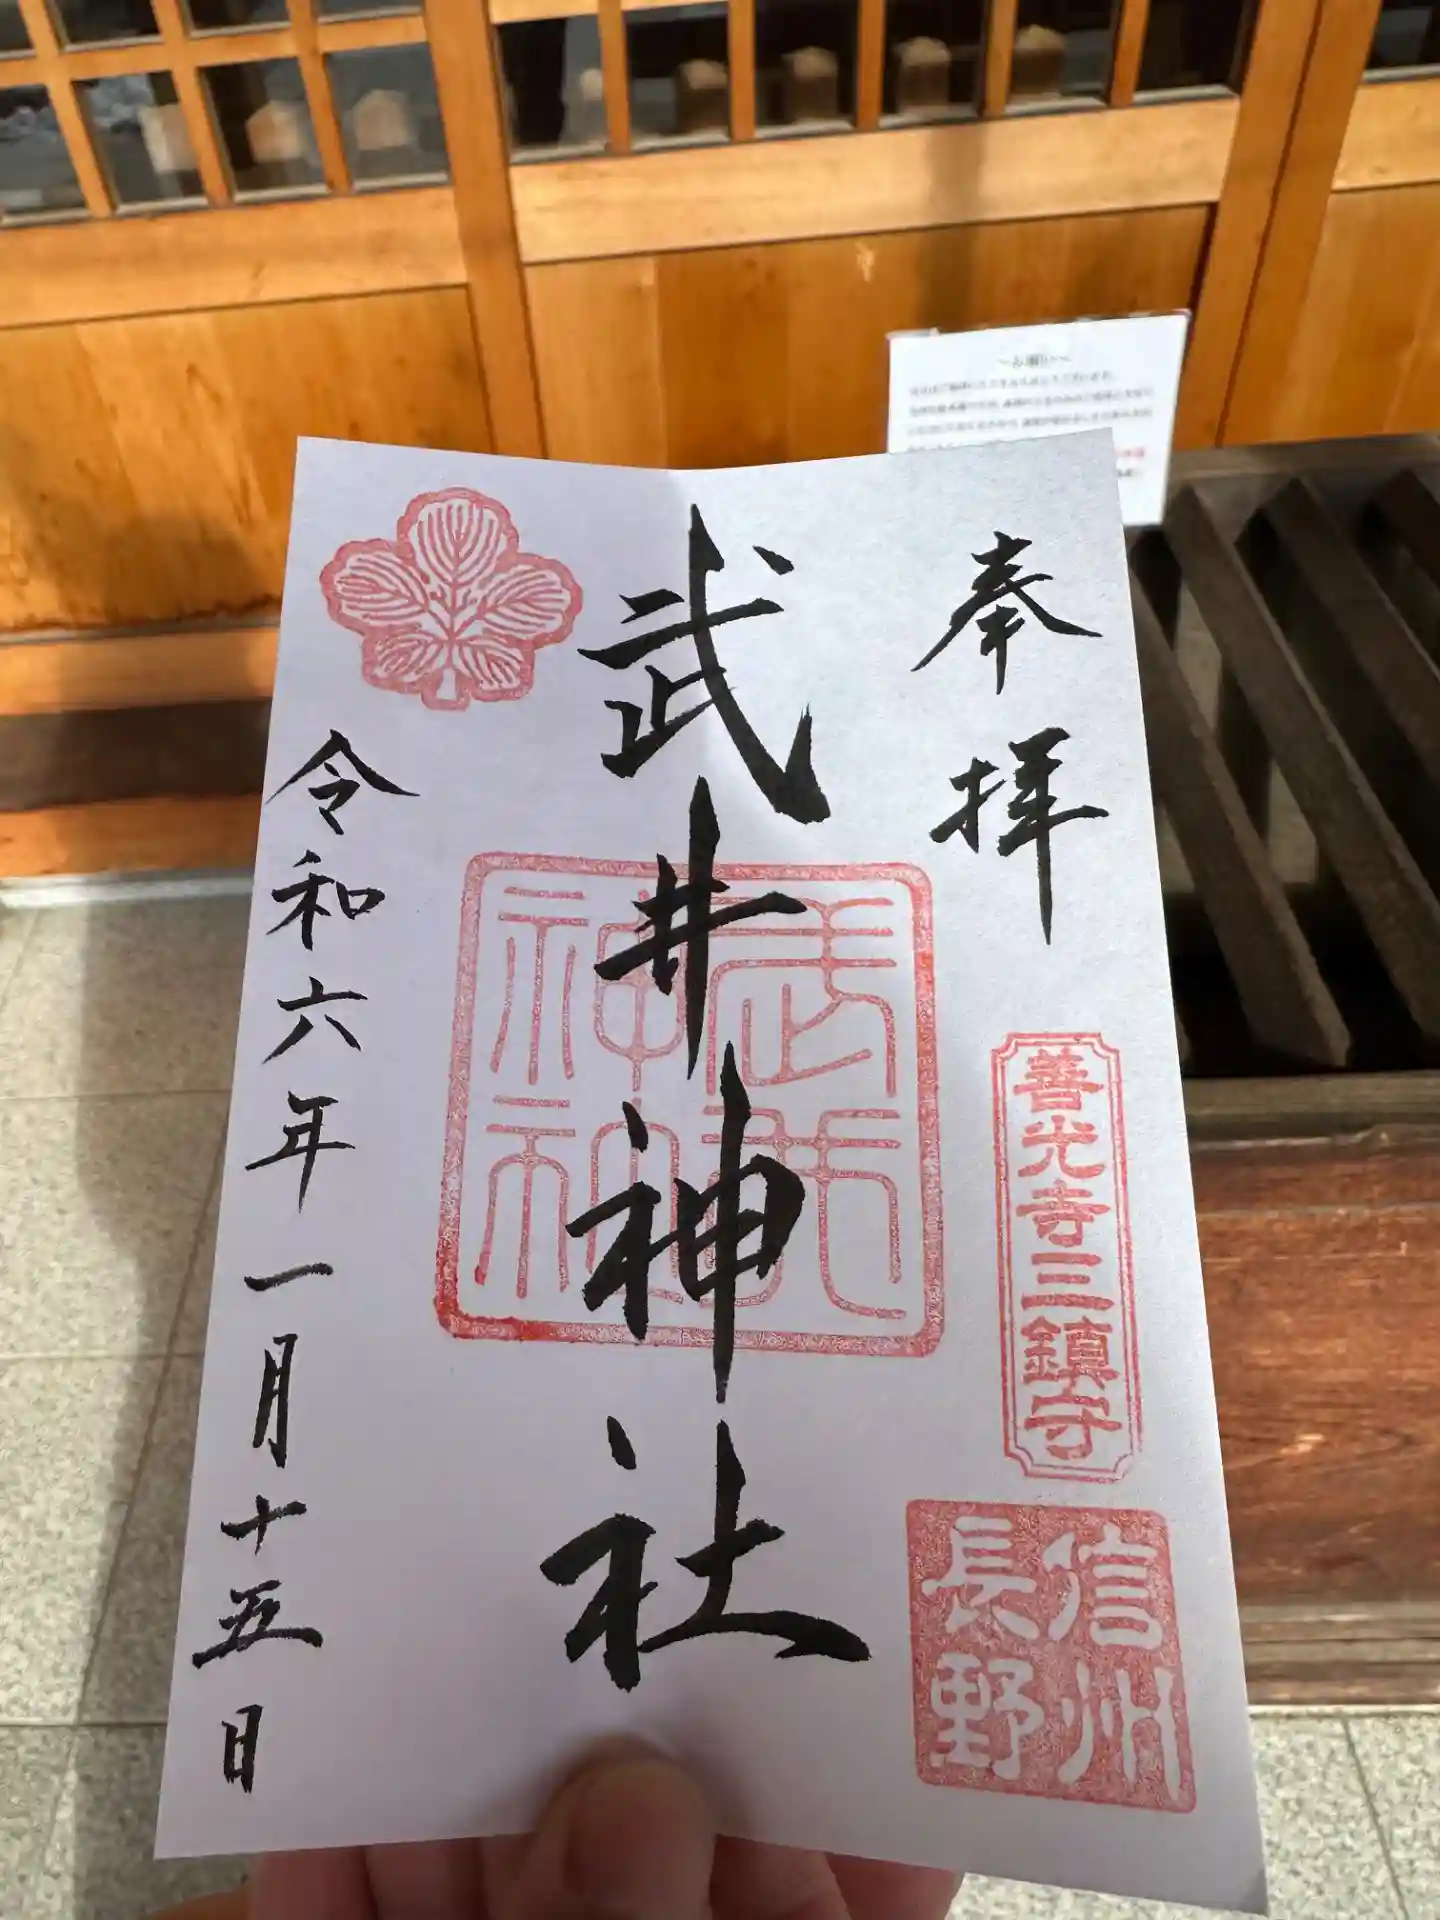 奉拝
善光寺三鎮守
信州
長野
武井神社
令和六年一月十五日